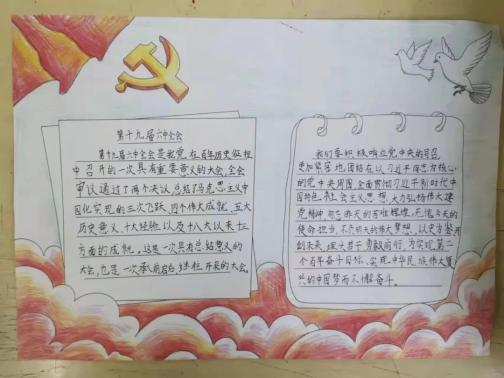 第十九届六中全会
第十九届六中全会是我党在百年历史征程
中召开的一次具有重要意义的大会,全会
审议通过了两个决议,总结了马克思主义中国
化实现的三次飞跃,四个伟大成就,五大
历史意义,十大经验以及十八大以来十三
方面的成就。这是一次具有总结意义的
大会,也是一次承前启后,继往开来的大会。
我们要积极响应党中央的号召
更加紧密地团结在以习近平同志为核心
的党中央周围,全面贯彻习近平新时代中
国特色社会主义思想,大力弘扬伟大建
党精神,勿忘昨天的苦难辉煌,无愧今天的
使命担当,不负明天的伟大梦想,以史为鉴开
创未来,埋头苦干勇毅前行,为实现第二
个百年奋斗目标,实现中华民族伟大复
兴的中国梦而不懈奋斗。